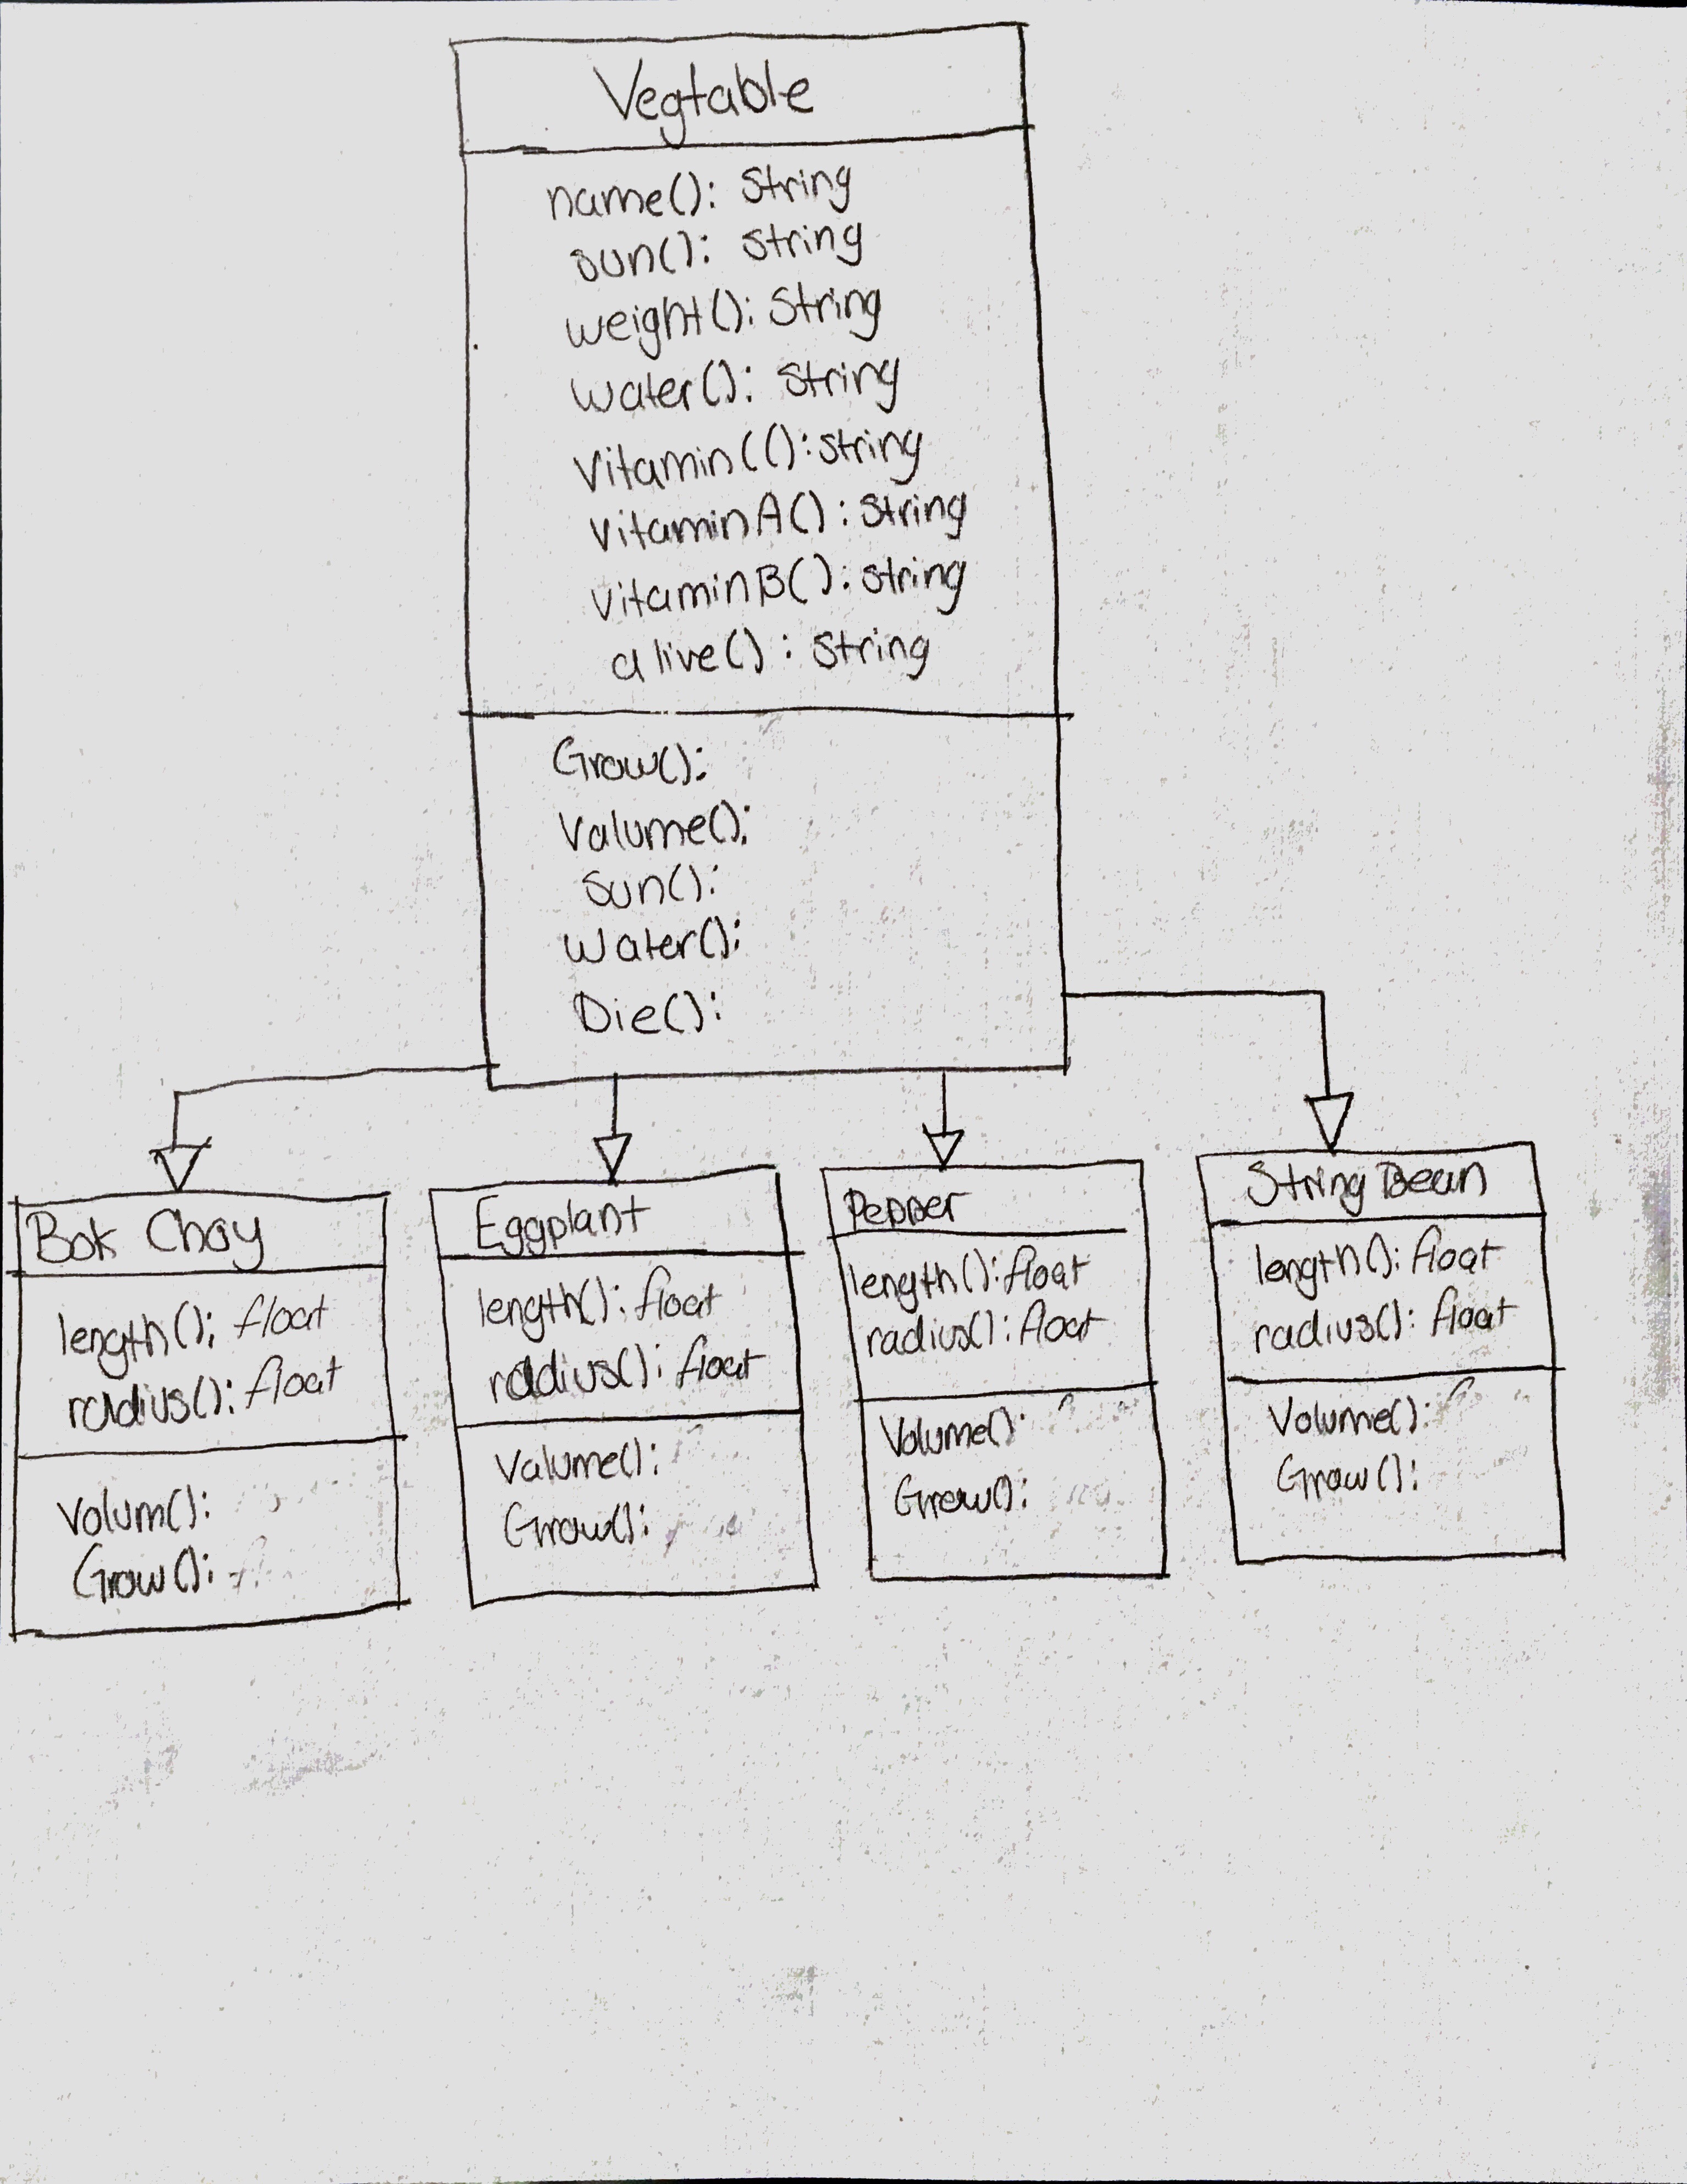 Vegtable
name(): String
sun(): String
weight(): String
water(): String
VitaminC(): String
vitaminA(): String
vitaminB(): String
alive(): String
Grow():
Valume():
Sun():
Water():
Die():
Bok Choy
length(): float
radius(): float
Volum():
Grow():
Eggplant
length(): float
radius(): float
Valume():
Grow():
Pepper
length(): float
radius(): float
Volume():
Grow():
String Bean
length(): float
radius(): float
Volume():
Grow():